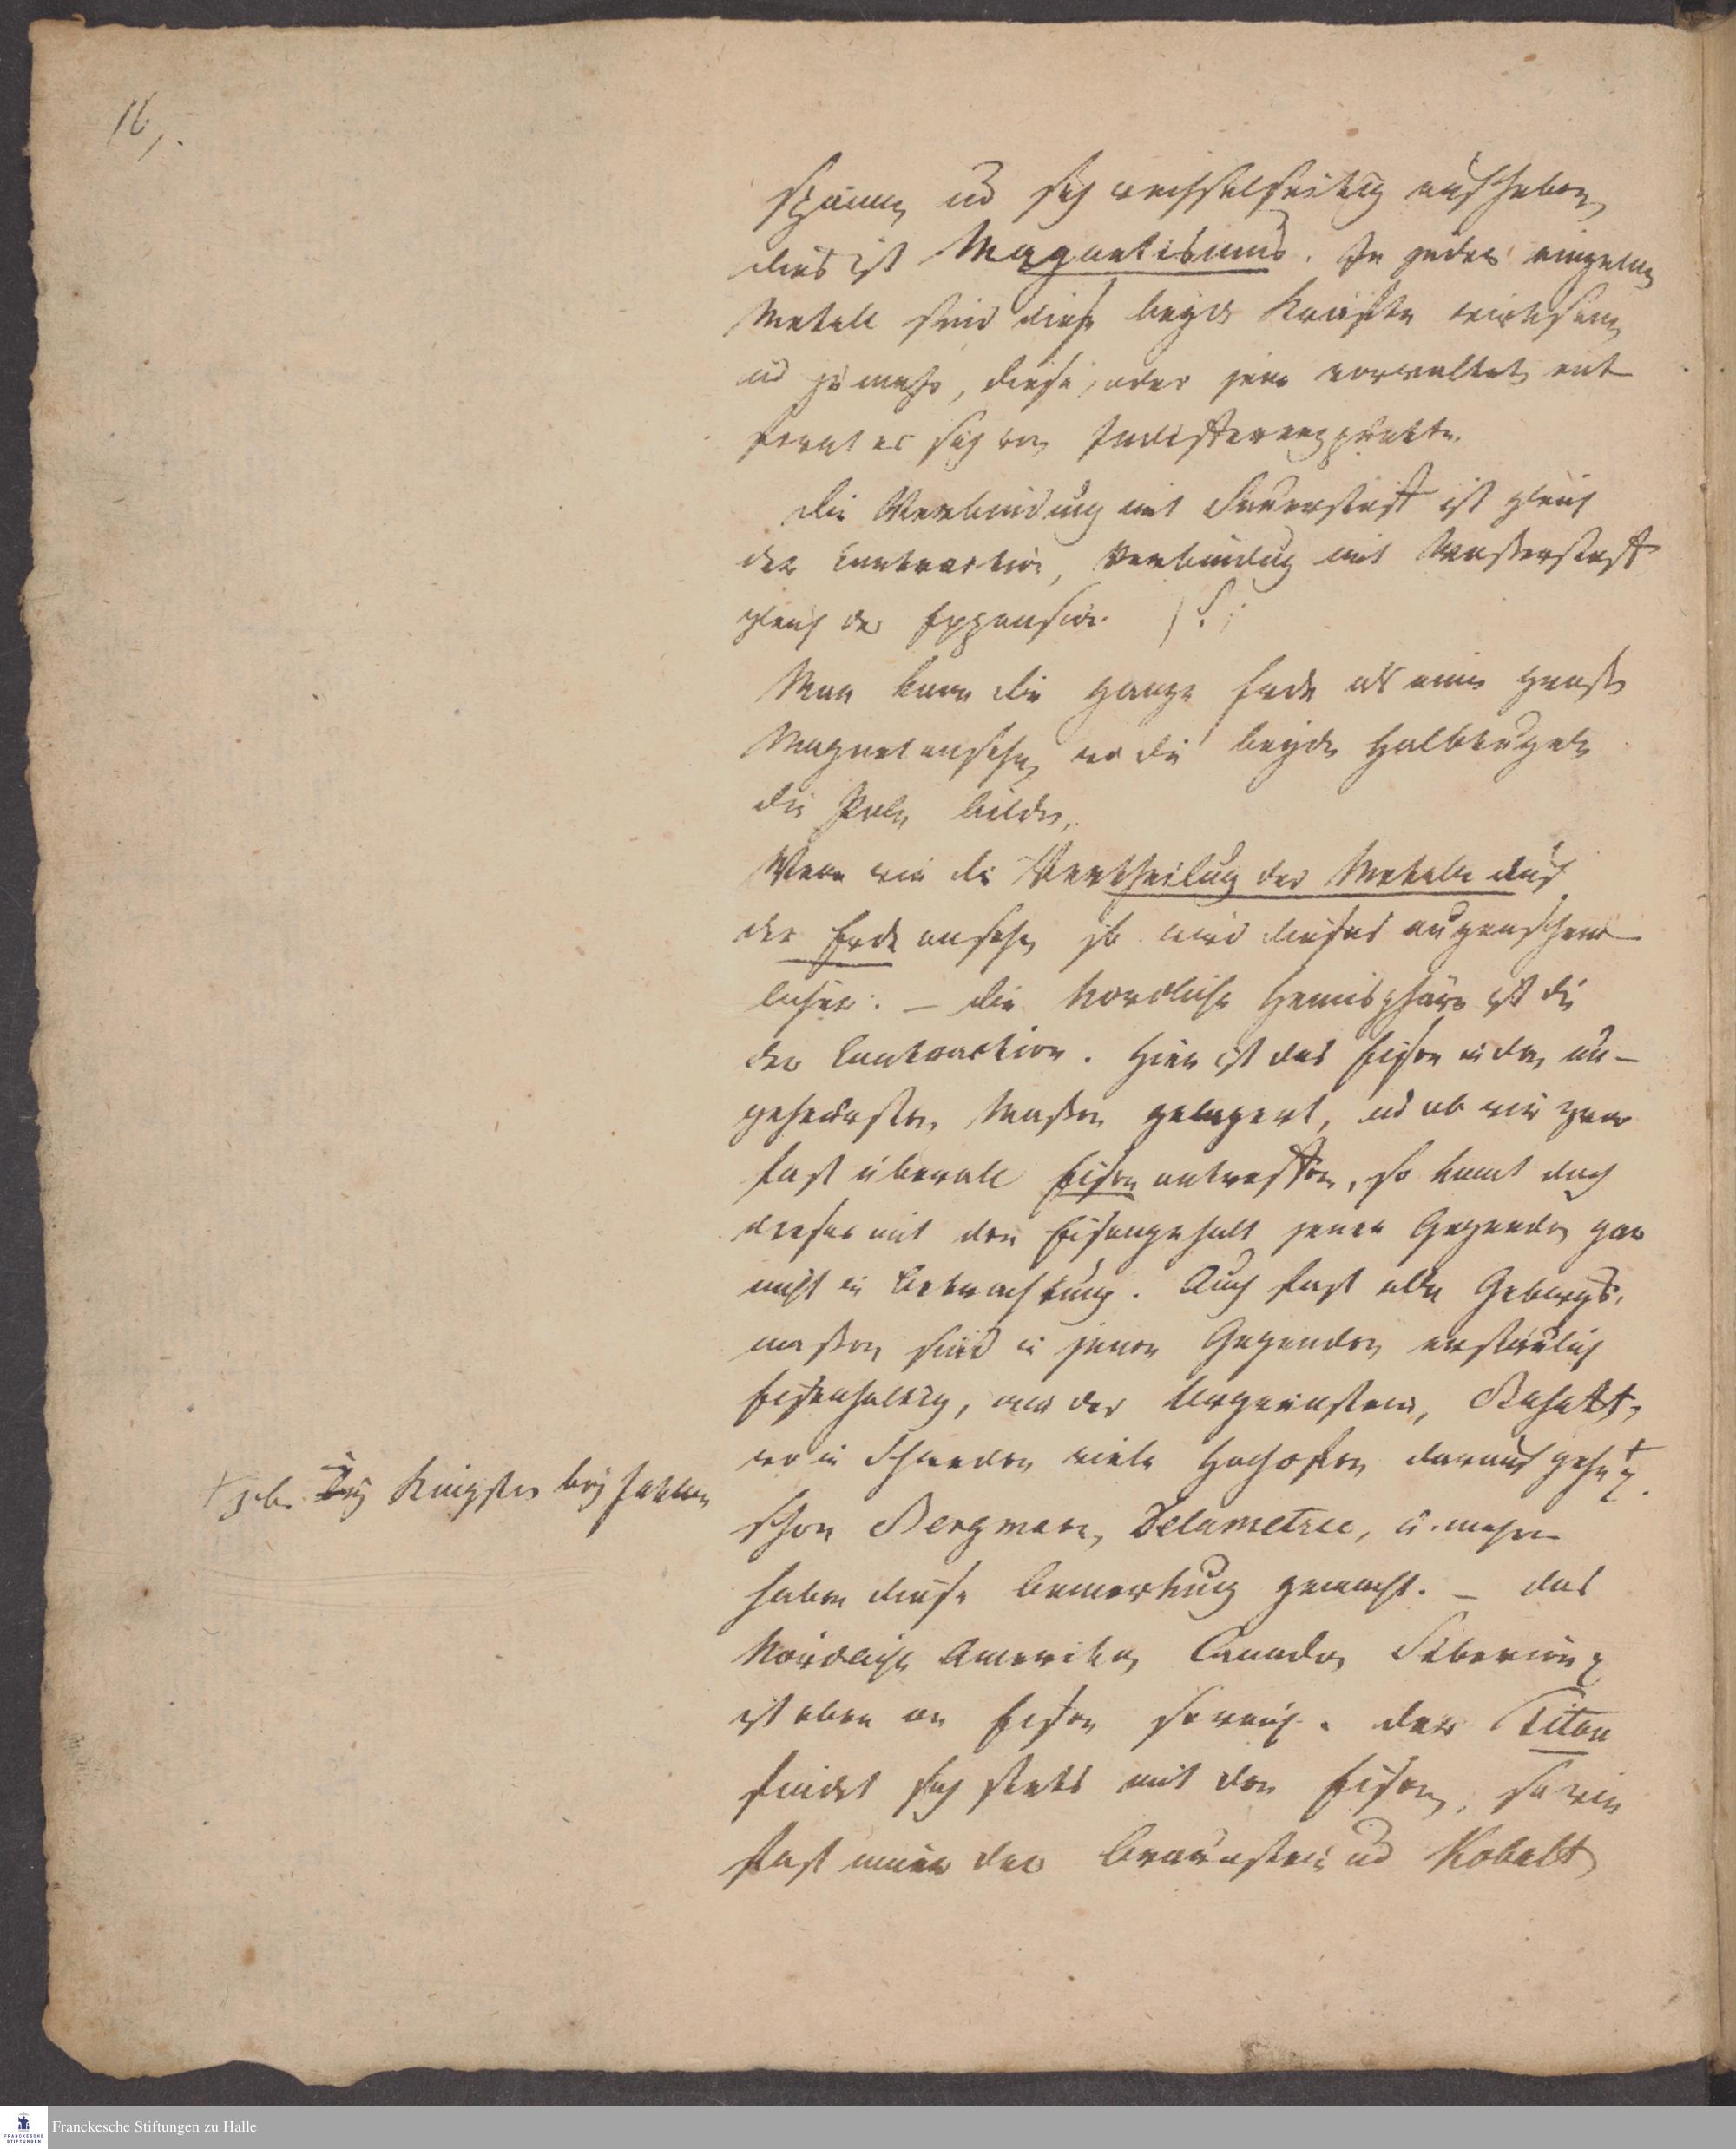 16,.
spannen und sich wechselseitig aufheben,
dies ist Magnetismus. In jedem einzelnen
Metall sind diese beyden Kräfte wirksam,
und je mehr, diese, oder jene vorwaltet ent
fernt er sich vom Indifferenzpunkte.
Die Verbindung mit Sauerstoff ist gleich
der Contraction, Verbindung mit Wasserstoff
gleich der Expansion
Man kann die ganze Erde als einen großen
Magnet ansehen, wo die beyden Halbkugeln
die Pole bilden,
Wenn wir die Vertheilung der Metalle auf
der Erde ansehen so wird dieses augenschein
licher. – Die Nordliche Hemisphäre ist die
der Contraction. Hier ist das Eisen in den un-
geheursten Maßen gelagert, und ob wir zwar
fast überall Eisen antreffen, so kömt doch
dieses mit dem Eisengehalt jener Gegenden gar
nicht in Betrachtung. Auch fast alle Gebirgs,
maßen sind in jenen Gegenden erstaunlich
Eisenhaltig, wie der Basalt,
wo in Schweden viele Hochofen darauf gehen +.
+ z. b. bey
schon Bergmann, Delametrie, u. mehre
haben diese Bemerkung gemacht. – das
Nördliche Amerika, Canada, Siberien,
ist eben an Eisen so reich. der Titan
findet sich stets mit dem Eisen, so wie
fast immer der Braunstein und Kobalt
Franckesche Stiftungen zu Halle